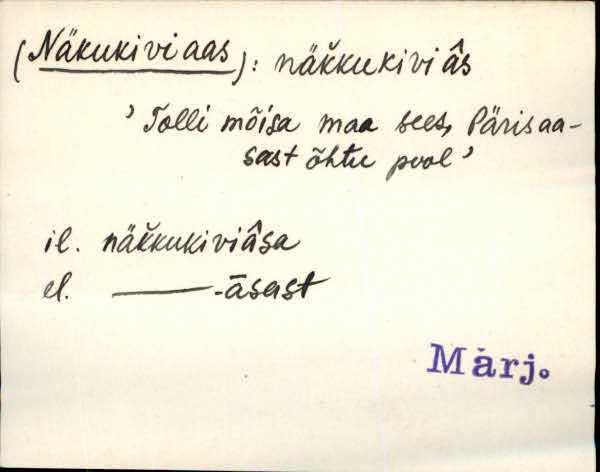 (Näkukivi aas): näk̆kukivi âs
' Tolli mõisa maa sees, Pärisaa-
sast õhtu pool '
il. näk̆kukiviâsa
el. ——— -āsast
Märj.